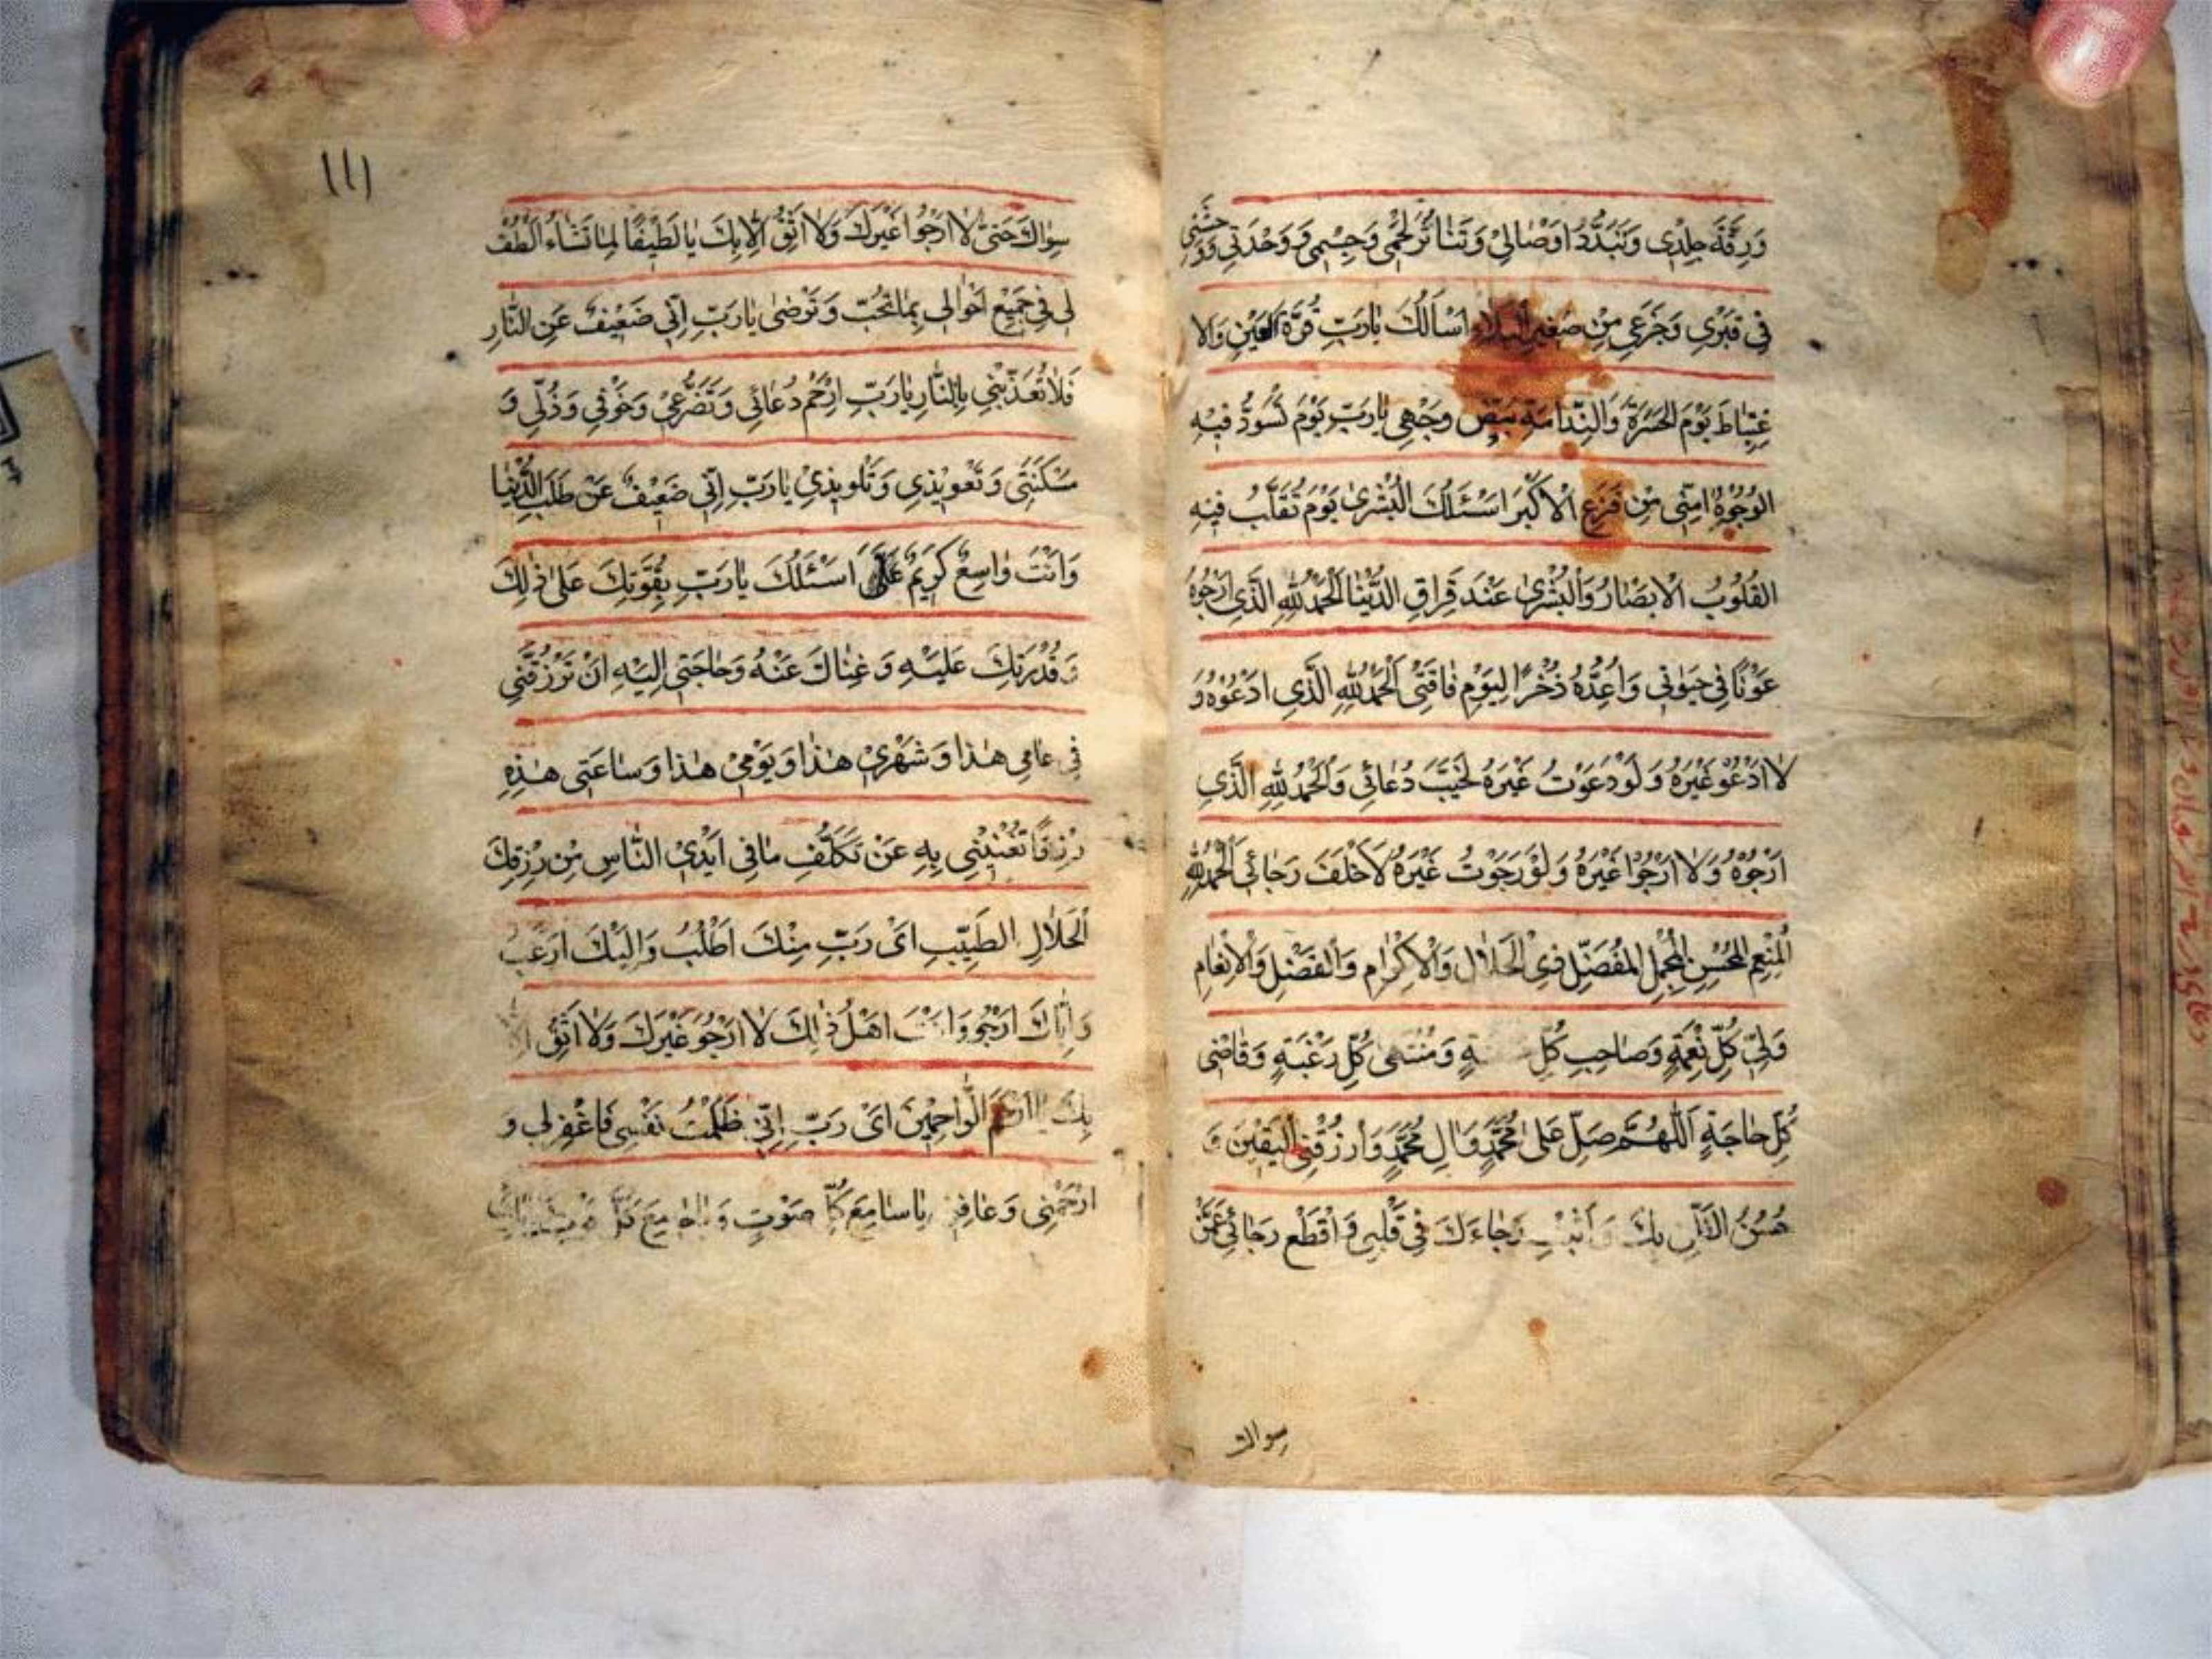 وَرِقَّةَ جِلْدِی وَتَبَدُّدَ اَوْصٰالِیْ وَتَنٰاثُرَ لَحْمِی وَجِسْمِی وَوَحْدَتِی وَوَحْشَتِی
فِی قَبْرِی وَجَزَعِی مِنْ صَغِیرِ الْبَلاٰءِ اَسْاَلُكَ یٰارَبِّ قُرَّةَ الْعَیْنِ وَالا
غْتِبٰاطَ یَوْمَ الْحَسْرَةِ وَالنَّدٰامَةِ بَیِّضْ وَجْهِی یٰارَبِّ یَوْمَ تَسْوَدُّ فِیْهِ
الْوُجُوْهُ اٰمِنِّی مِنْ فَزَعِ الْاَكْبَرِ اَسْئَلُكَ الْبُشْرٰی یَوْمَ تُقَلَّبُ فِیْهِ
الْقُلُوْبُ الْاَبْصٰارُ وَالْبُشْرٰی عِنْدَ فِرٰاقِ الدُّنْیٰا اَلْحَمْدُ لِلّٰهِ الَّذِی اَرْجُوْهُ
عَوْنًا فِی حَیٰوتِی وَاُعِدُّهُ ذُخْرًا لِیَوْمِ فٰاقَتِی اَلْحَمْدُ لِلّٰهِ الَّذِی اَدْعُوْهُ وَ
لاٰ اَدْعُوْ غَیْرَهُ وَلَوْ دَعَوْتُ غَیْرَهُ لَخَیَّبَ دُعٰائِی وَالْحَمْدُ لِلّٰهِ الَّذِی
اَرْجُوْهُ وَلاٰ اَرْجُوْا غَیْرَهُ وَلَوْ رَجَوْتُ غَیْرَهُ لَاَخْلَفَ رَجٰائِی اَلْحَمْدُ لِلّٰهِ
الْمُنْعِمِ الْمُحْسِنِ الْمُجْمِلِ الْمُفْضِلِ ذِی الْجَلاٰلِ وَالْاِكْرٰامِ وَالْفَضْلِ وَالْاِنْعٰامِ
وَلِیِّ كُلِّ نِعْمَةٍ وَصٰاحِبِ كُلِّ وَمُنْتَهٰی كُلِّ رَغْبَةٍ وَقٰاضِی
كُلِّ حٰاجَةٍ اَللّٰهُمَّ صَلِّ عَلٰی مُحَمَّدٍ وَاٰلِ مُحَمَّدٍ وَارْزُقْنِی الْیَقِیْنَ وَ
حُسْنَ الظَّنِّ بِكَ وَاَثْبِتْ رَجٰاءَكَ فِی قَلْبِی وَاقْطَعْ رَجٰائِی عَمَّنْ
سواك
١١١
سِوٰاكَ حَتّٰی لاٰ اَرْجُوْا غَیْرَكَ وَلاٰ اَثِقُ اِلاّٰ بِكَ یٰا لَطِیْفًا لِمٰا تَشٰاءُ الْطُفْ
لِی فِی جَمِیْعِ اَحْوٰالِی بِمٰا تُحِبُّ وَتَرْضٰی یٰارَبِّ اِنِّی ضَعِیْفٌ عَنِ النّٰارِ
فَلاٰ تُعَذِّبْنِی بِالنّٰارِ یٰارَبِّ ارْحَمْ دُعٰائِی وَتَضَرُّعِیْ وَخَوْفِی وَذُلِّی وَ
مَسْكَنَتِی وَتَعْوِیْذِی وَتَلْوِیْذِیْ یٰارَبِّ اِنِّی ضَعِیْفٌ عَنْ طَلَبِ الدُّنْیٰا
وَاَنْتَ وٰاسِعٌ كَرِیْمٌ اَسْئَلُكَ یٰارَبِّ بِقُوَّتِكَ عَلٰی ذٰلِكَ
وَقُدْرَتِكَ عَلَیْهِ وَغِنٰاكَ عَنْهُ وَحٰاجَتِی اِلَیْهِ اَنْ تَرْزُقَنِی
فِی عٰامِی هٰذٰا وَشَهْرِیْ هٰذٰا وَیَوْمِیْ هٰذٰا وَسٰاعَتِی هٰذِهِ
رِزْقًا تُغْنِیْنِی بِهِ عَنْ تَكَلُّفِ مٰا فِی اَیْدِیْ النّٰاسِ مِنْ رِزْقِكَ
الْحَلاٰلِ الطَّیِّبِ اَیْ رَبِّ مِنْكَ اَطْلُبُ وَاِلَیْكَ اَرْغَبُ
وَاِیّٰاكَ اَرْجُو وَاَنْتَ اَهْلُ ذٰلِكَ لاٰ اَرْجُوْ غَیْرَكَ وَلاٰ اَثِقُ اِلاّٰ
بِكَ یٰا اَرْحَمَ الرّٰاحِمِیْنَ اَیْ رَبِّ اِنِّی ظَلَمْتُ نَفْسِی فَاغْفِرْ لِی وَ
ارْحَمْنِی وَعٰافِنِی یٰا سٰامِعَ كُلِّ صَوْتٍ وَیٰا جٰامِعَ كُلِّ